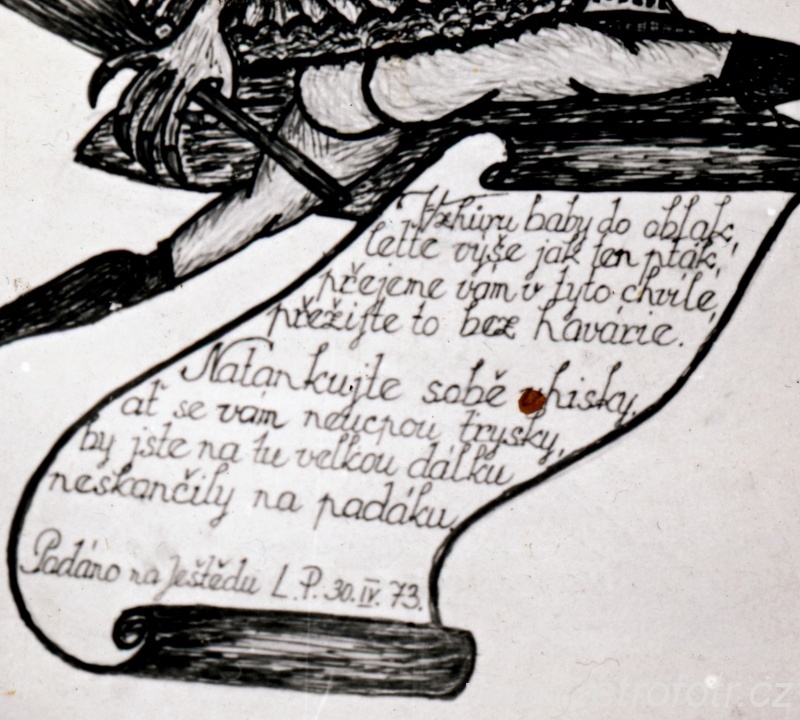 Vzhůru baby do oblak,
leťte výše jak ten pták,
přejeme vám v tyto chvíle,
přežijte to bez havárie.
Natankujte sobě whisky,
ať se vám neucpou trysky,
by jste na tu velkou dálku
neskončily na padáku.
Podáno na Ještědu L.P. 30.IV. 73.